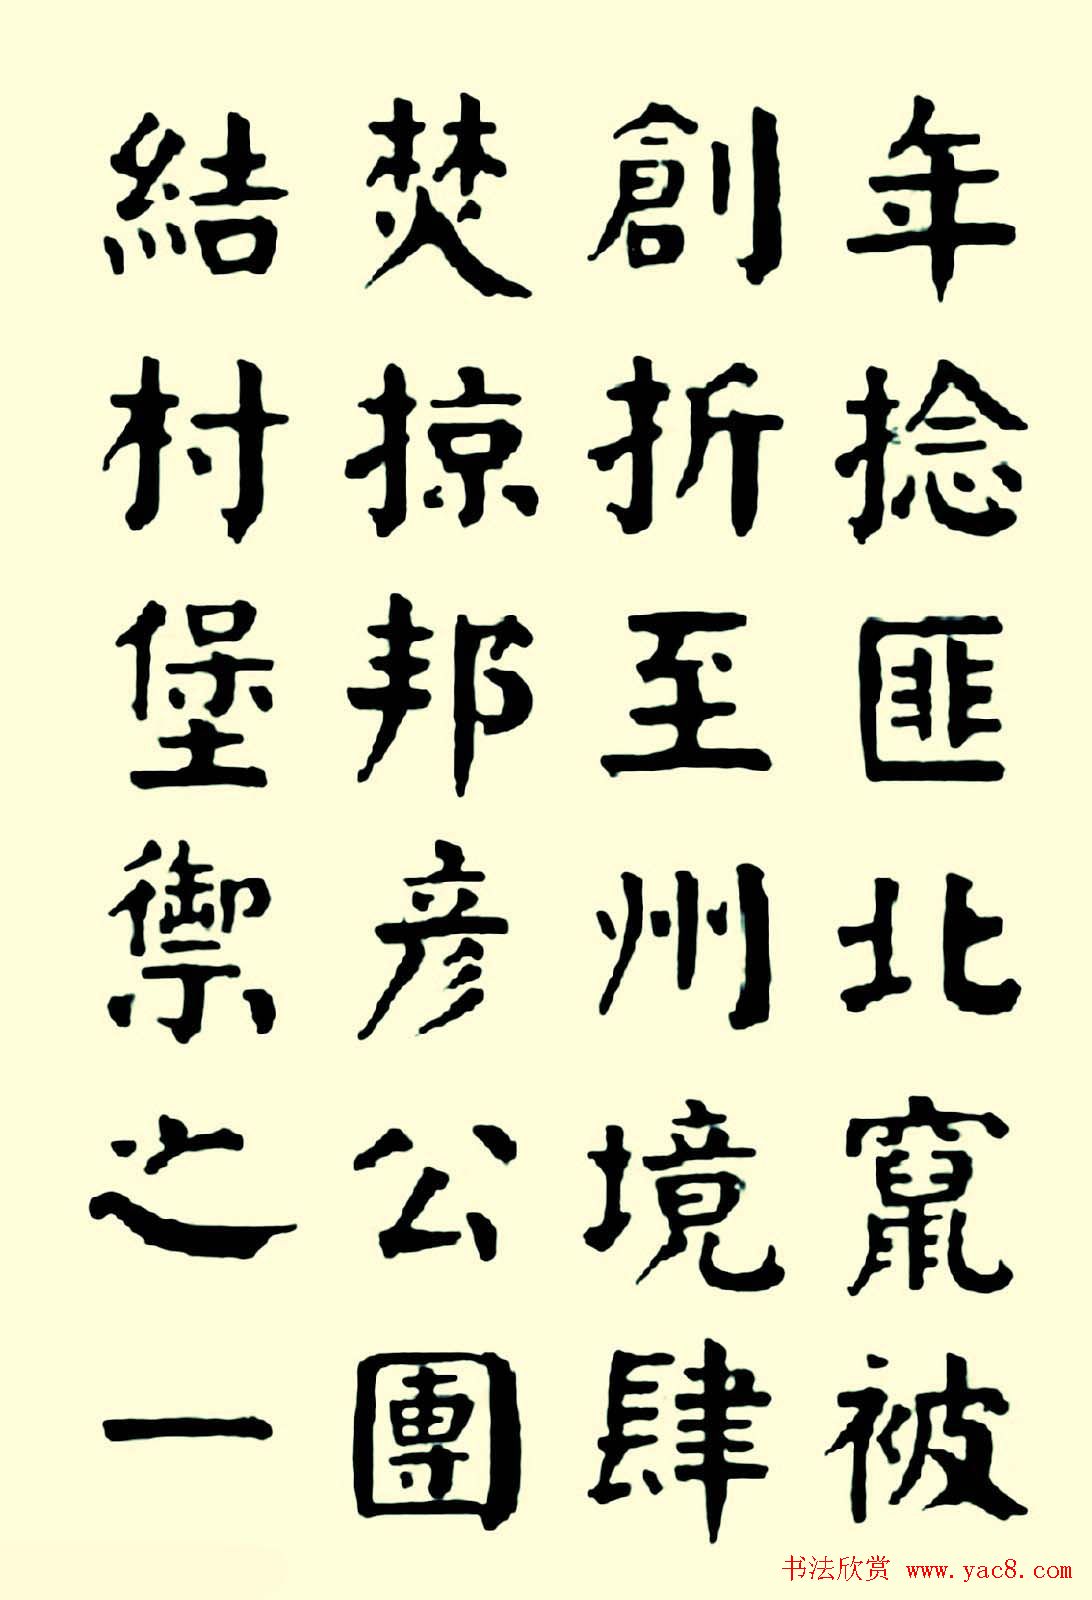 年捻匪北竄被
創折至州境肆
焚掠邦彥公團
結村堡禦之一
书法欣赏 www.yac8.com